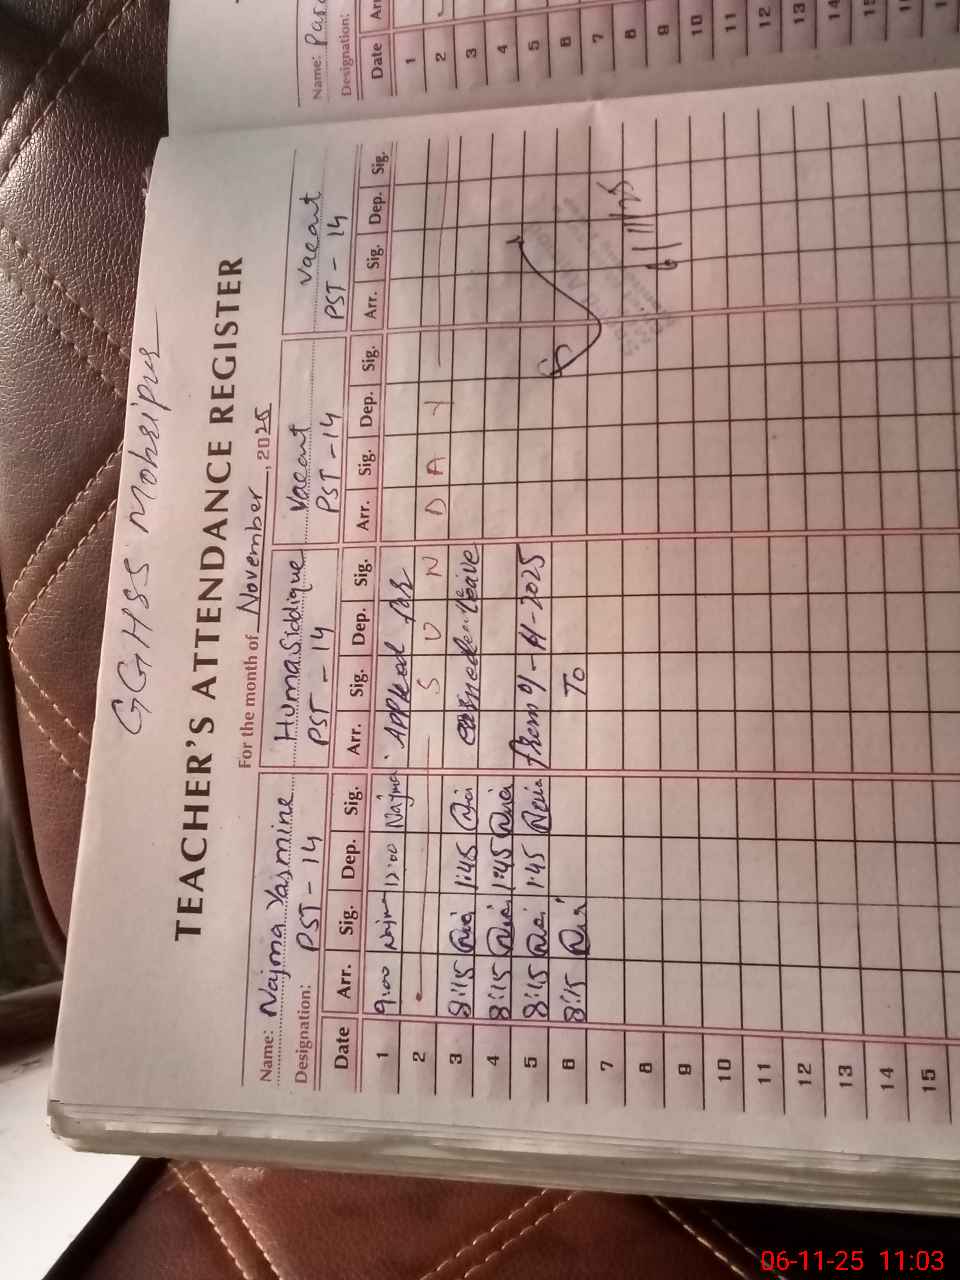 GGHSS Mohripur
TEACHER'S ATTENDANCE REGISTER
For the month of November, 2025
Name: Najma Yasmine Huma Siddique Vacant Vacant
Designation: PST - 14 PST - 14 PST - 14 PST - 14
Date Arr. Sig. Dep. Sig. Arr. Sig. Dep. Sig. Arr. Sig. Dep. Sig. Arr. Sig. Dep. Sig.
1 9:00 Najma 12:00 Najma Applied for
2 S U N D A Y
3 8:15 1:45 earned leave
4 8:15 1:45
5 8:15 1:45 from 01-11-2025
6 8:15 To
7
8
9
10
11
12
13
14
15
6/11/25
Name:
Designation:
Date Arr.
1
2
3
4
5
6
7
8
9
10
11
12
13
14
06-11-25 11:03